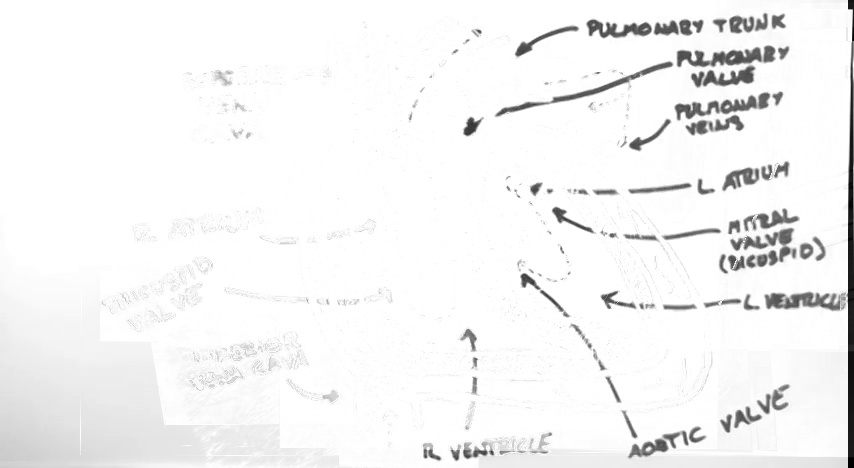 PULMONARY TRUNK
PULMONARY
VALVE
PULMONARY
VEINS
L. ATRIUM
MITRAL
VALVE
(BICUSPID)
L. VENTRICLE
AORTIC VALVE
R. VENTRICLE
R. ATRIUM
TRICUSPID
VALVE
INFERIOR
VENA CAVA